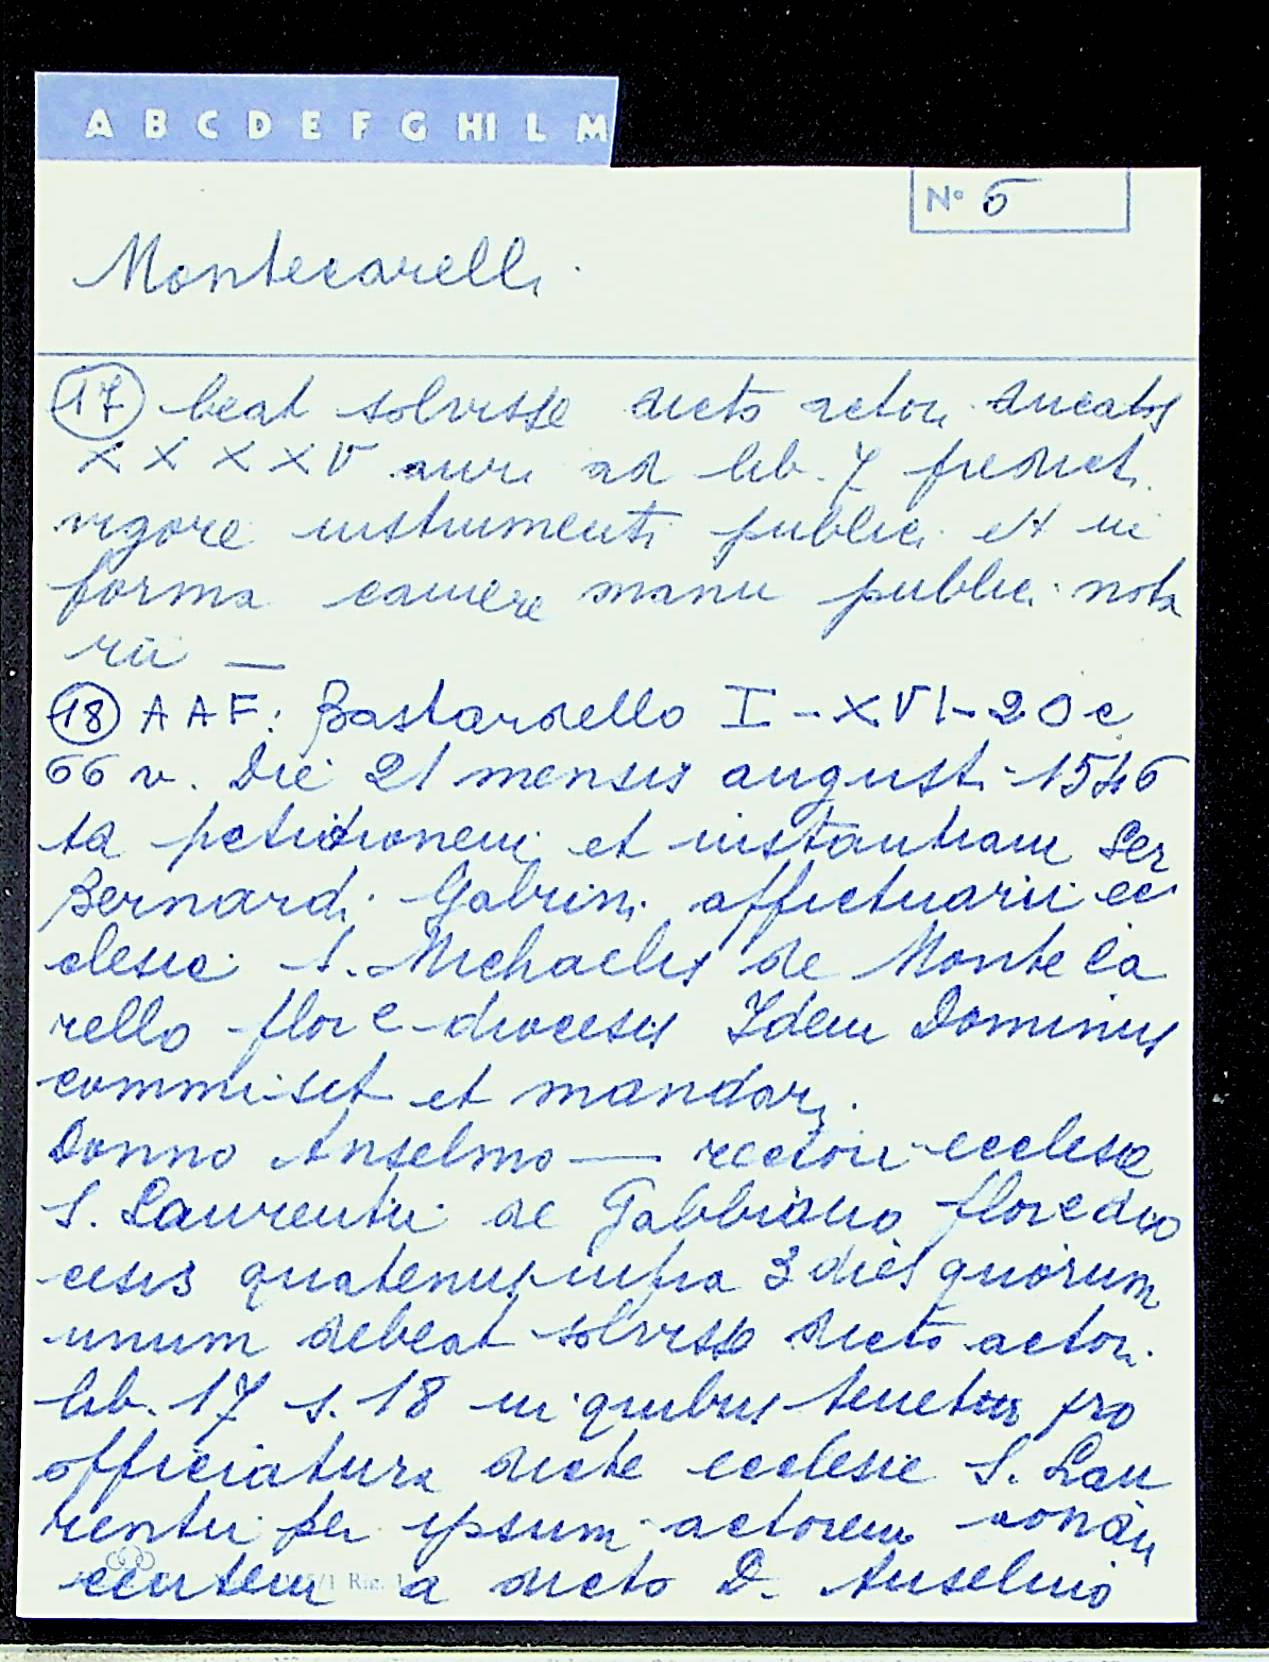 A B C D E F G HI L M
N° 6
Montecarelli
17 beat solvisse dicto actori ducatos
XXXXV auri ad lib. 7 predicti
vigore instrumenti publici et in
forma camere manu publici nota
rii —
18 AAF: Bastardello I-XVI-20 c
66 v. Die 21 mensis augusti 1546
ta petitionem et instantiam Ser
Bernardi Gabrini affictuarii ec
clesie S. Michaelis de Monte Ca
rello flor e diocesis Idem Dominus
commisit et mandari
Donno Anselmo — rectori ecclesie
S. Laurentii de Gabbiano flor e dio
cesis quatenus infra 3 dies quorum
unum debeat solvisse dicto actori
lib. 17 s. 18 in quibus tenetur pro
officiatura dicte ecclesie S. Lau
rentii per ipsum actorem
a dicto D. Anselmo